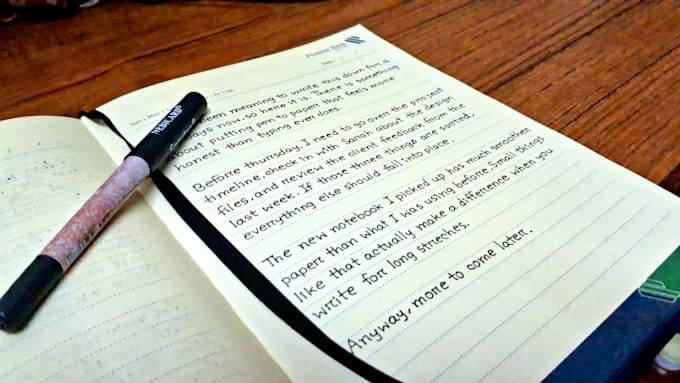 Premier Bank
Date: / /
been meaning to write this down for a
days now, so here it is. There is something
about putting pen to paper that feels more
honest than typing ever does.
Before thursday, I need to go over the project
timeline, check in with Sarah about the design
files, and review the client feedback from the
last week. If those three things are sorted,
everything else should fall into place.
The new notebook I picked up has much smoother
paper than what I was using before. Small things
like that actually make a difference when you
write for long streches.
Anyway, more to come later.